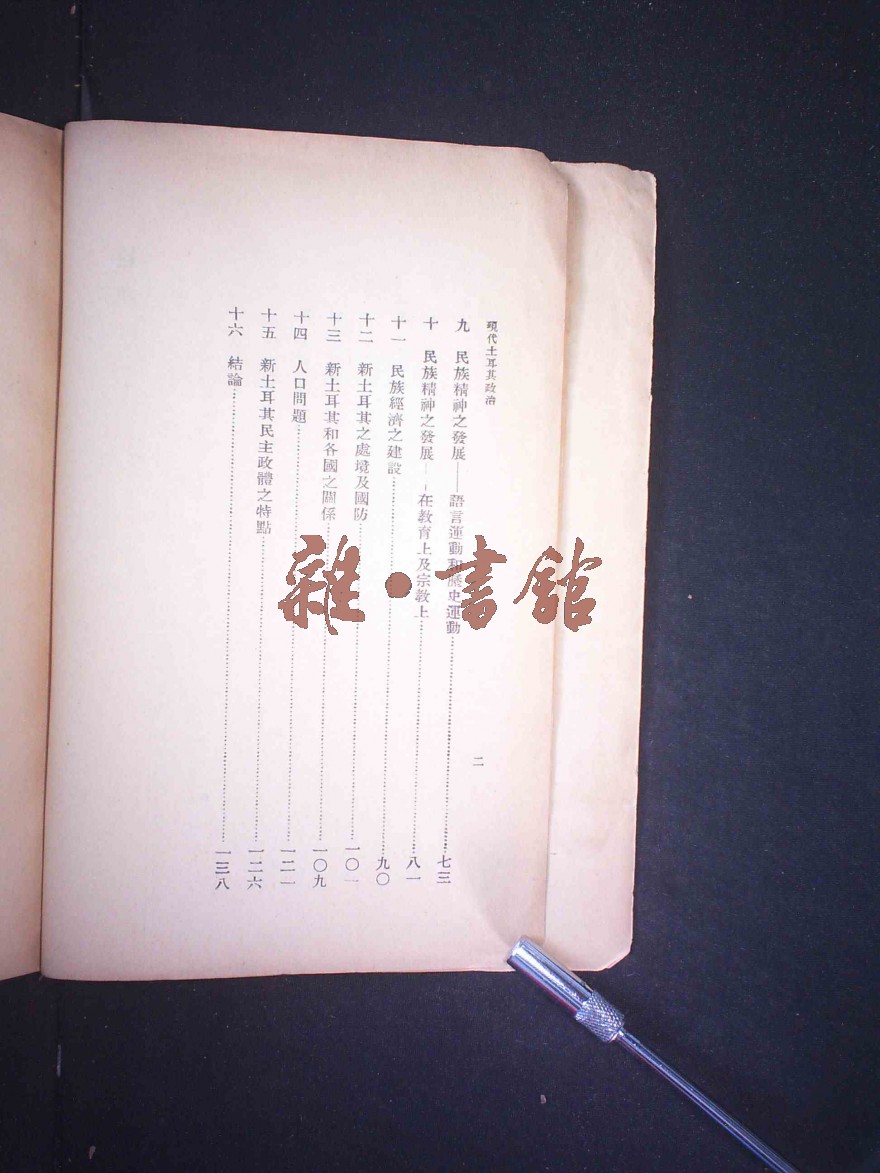 現代土耳其政治
二
九 民族精神之發展——語言運動和歷史運動……七三
十 民族精神之發展——在教育上及宗教上……八一
十一 民族經濟之建設……九〇
十二 新土耳其之處境及國防……一〇一
十三 新土耳其和各國之關係……一〇九
十四 人口問題……一二一
十五 新土耳其民主政體之特點……一二六
十六 結論……一三八
雜·書館